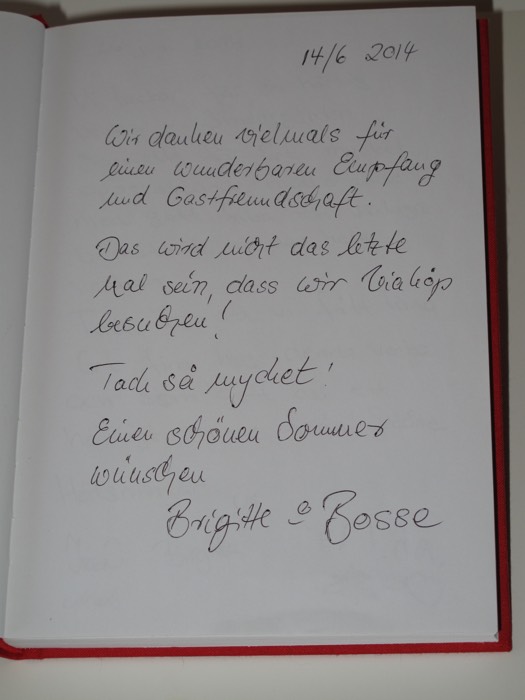 14/6 2014
Wir danken vielmals für
einen wunderbaren Empfang
und Gastfreundschaft.
Das wird nicht das letzte
Mal sein, dass wir Viaköp
besuchen!
Tack så mycket!
Einen schönen Sommer
wünschen
Brigitte & Bosse